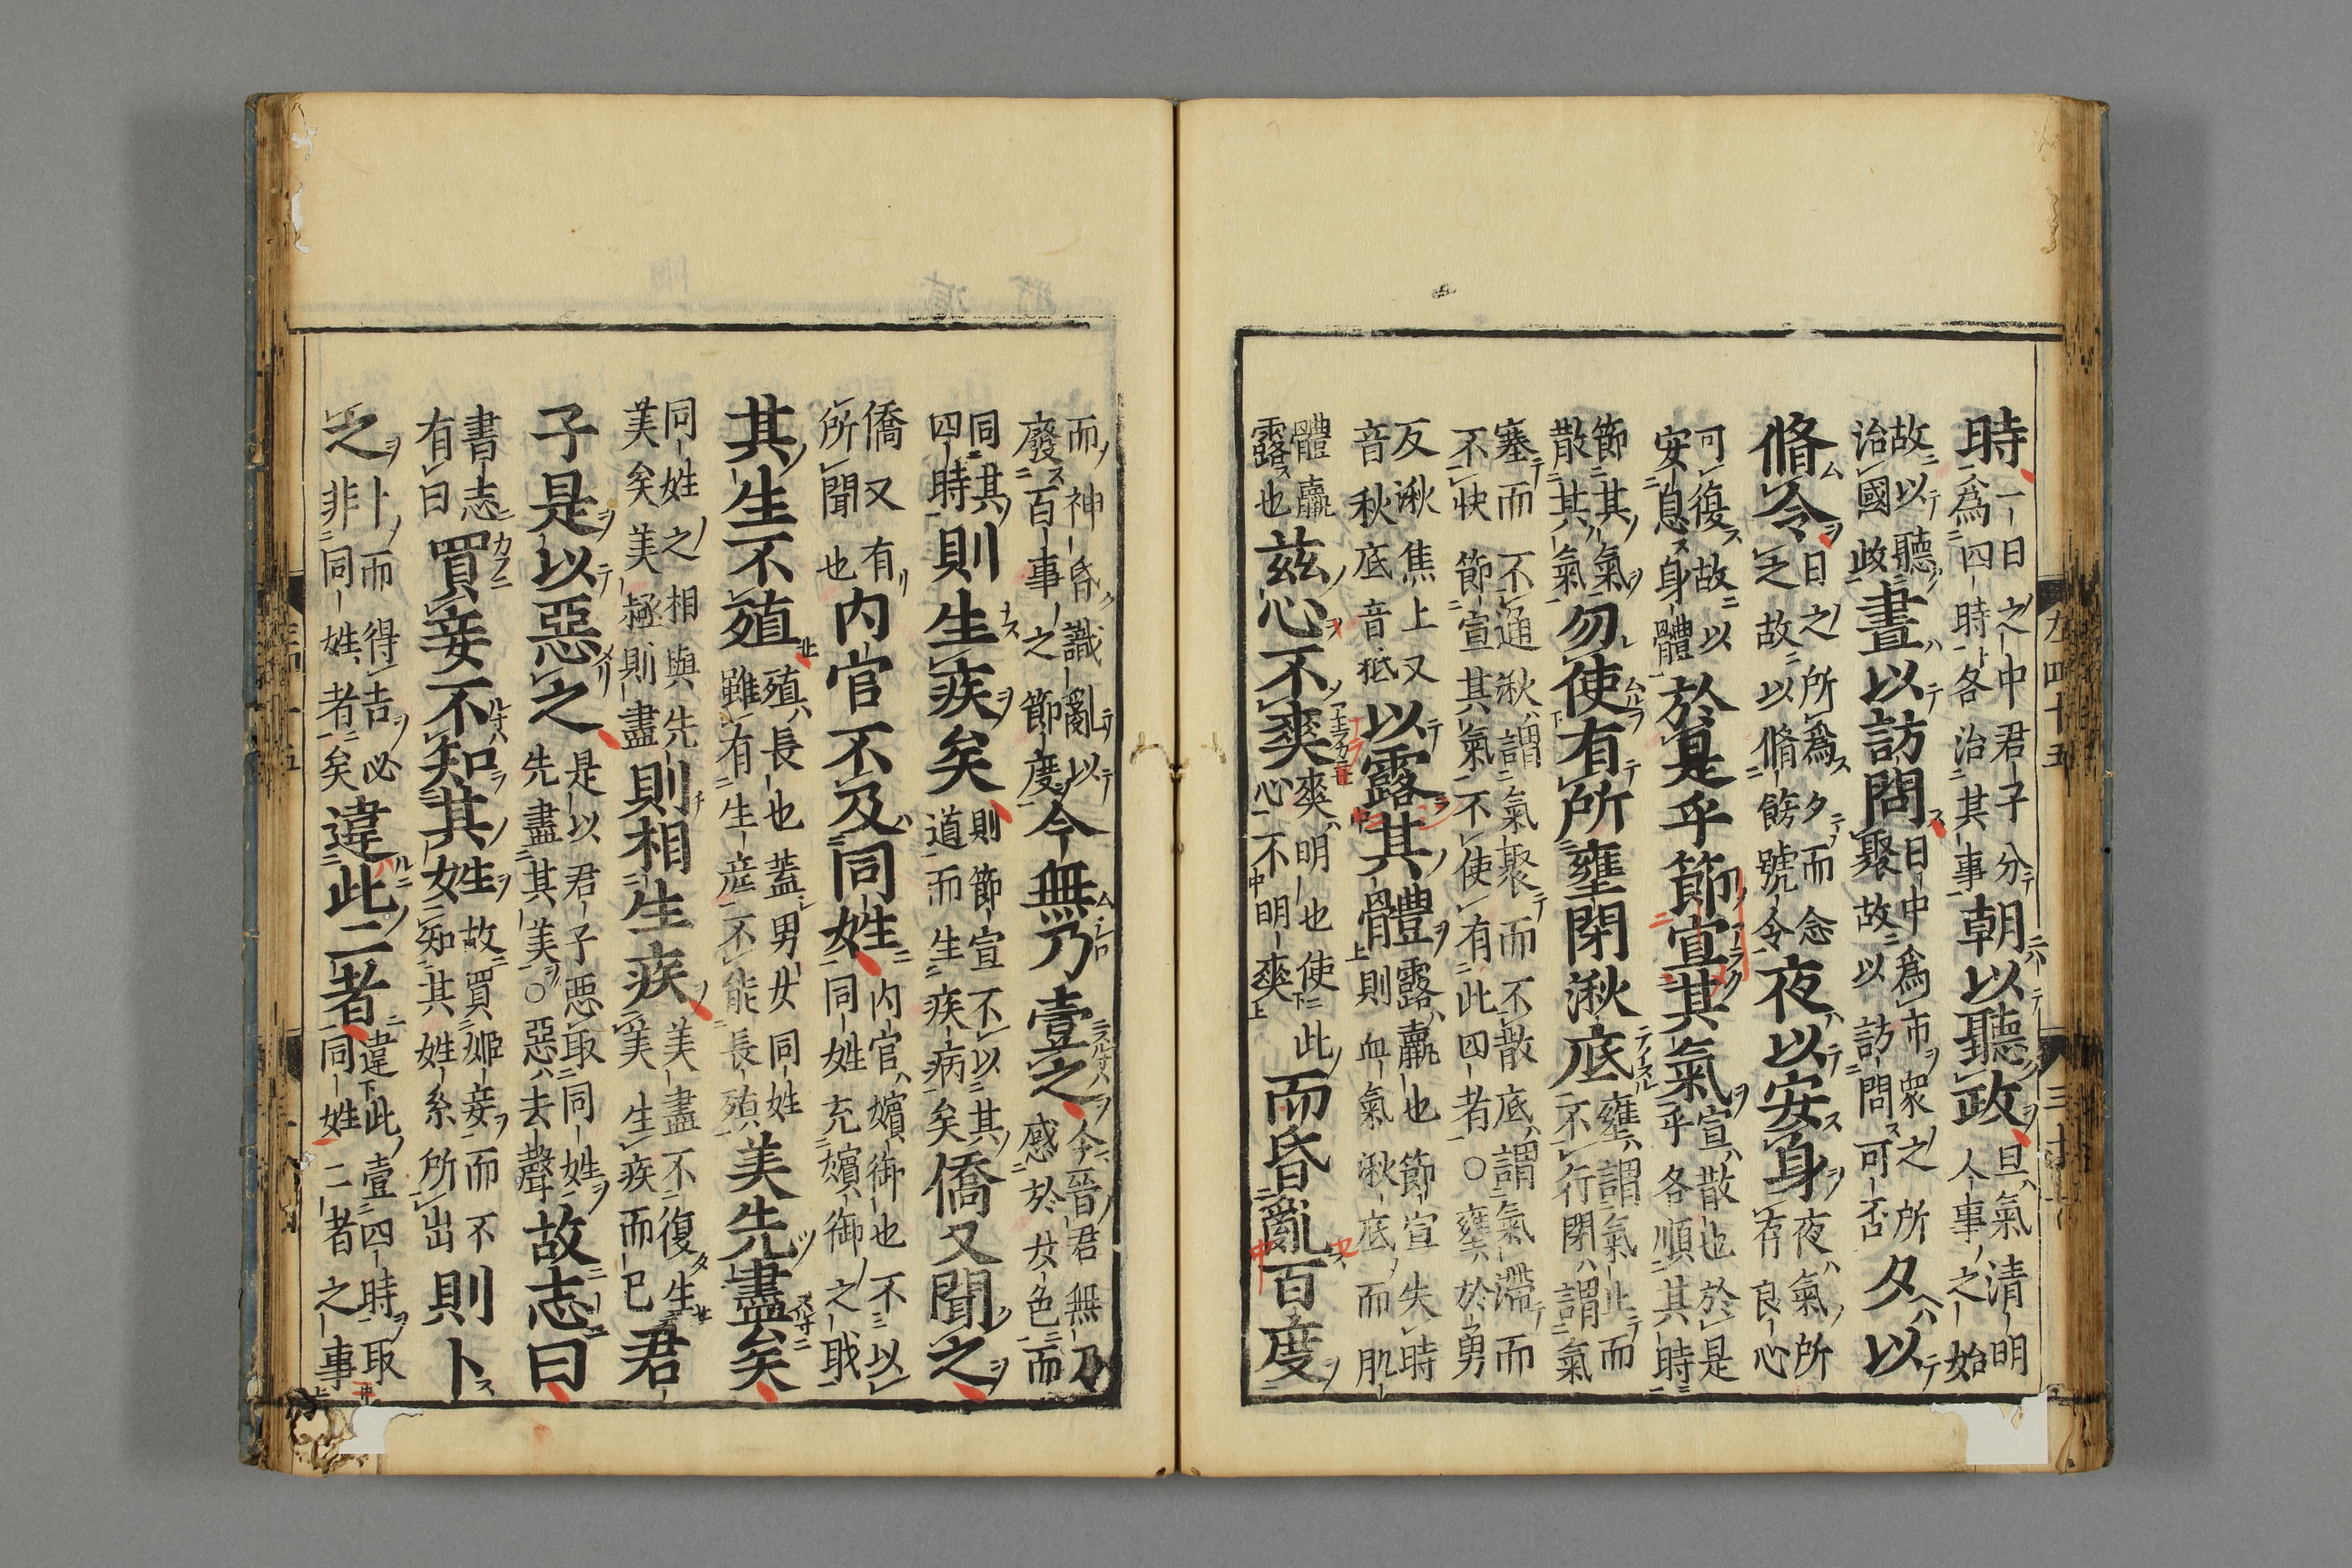 時一日之中君子分爲四時各治其事朝以聽政旦氣清明人事之始
故以聽治國政晝以訪問日中爲市衆之所聚故以訪問可否夕以
脩令日之所爲夕而念之故以脩飭號令夜以安身夜氣所存良心
可復故以安息身體於是乎節宣其氣宣散也於是乎各順其時
節其氣散其氣勿使有所壅閉湫底壅謂氣止而不行閉謂氣
塞而不通湫謂氣聚而不散底謂氣滯而不快節宣其氣不使有此四者○壅於勇
反湫焦上又音秋底音抵以露其體露羸也節宣失時則血氣湫底而肌
體羸露也茲心不爽爽明也使此心不明爽而昏亂百度
而神昏識亂以廢百事之節度今無乃壹之今晉君無乃感於女色而
同其四時則生疾矣則節宣不以其道而生疾病矣僑又聞之
僑又有所聞也内官不及同姓内官嬪御也不以同姓充嬪御之職
其生不殖殖長也蓋男女同姓雖有生産不能長殖美先盡矣
同姓之相與先美矣美極則盡則相生疾美盡不復生美生疾而已君
子是以惡之是以君子惡取同姓先盡其美○惡去聲故志曰
書志有曰買妾不知其姓故買姬妾而不知其姓系所出則卜
之卜而得吉必非同姓者矣違此二者違此壹四時取同姓二者之事